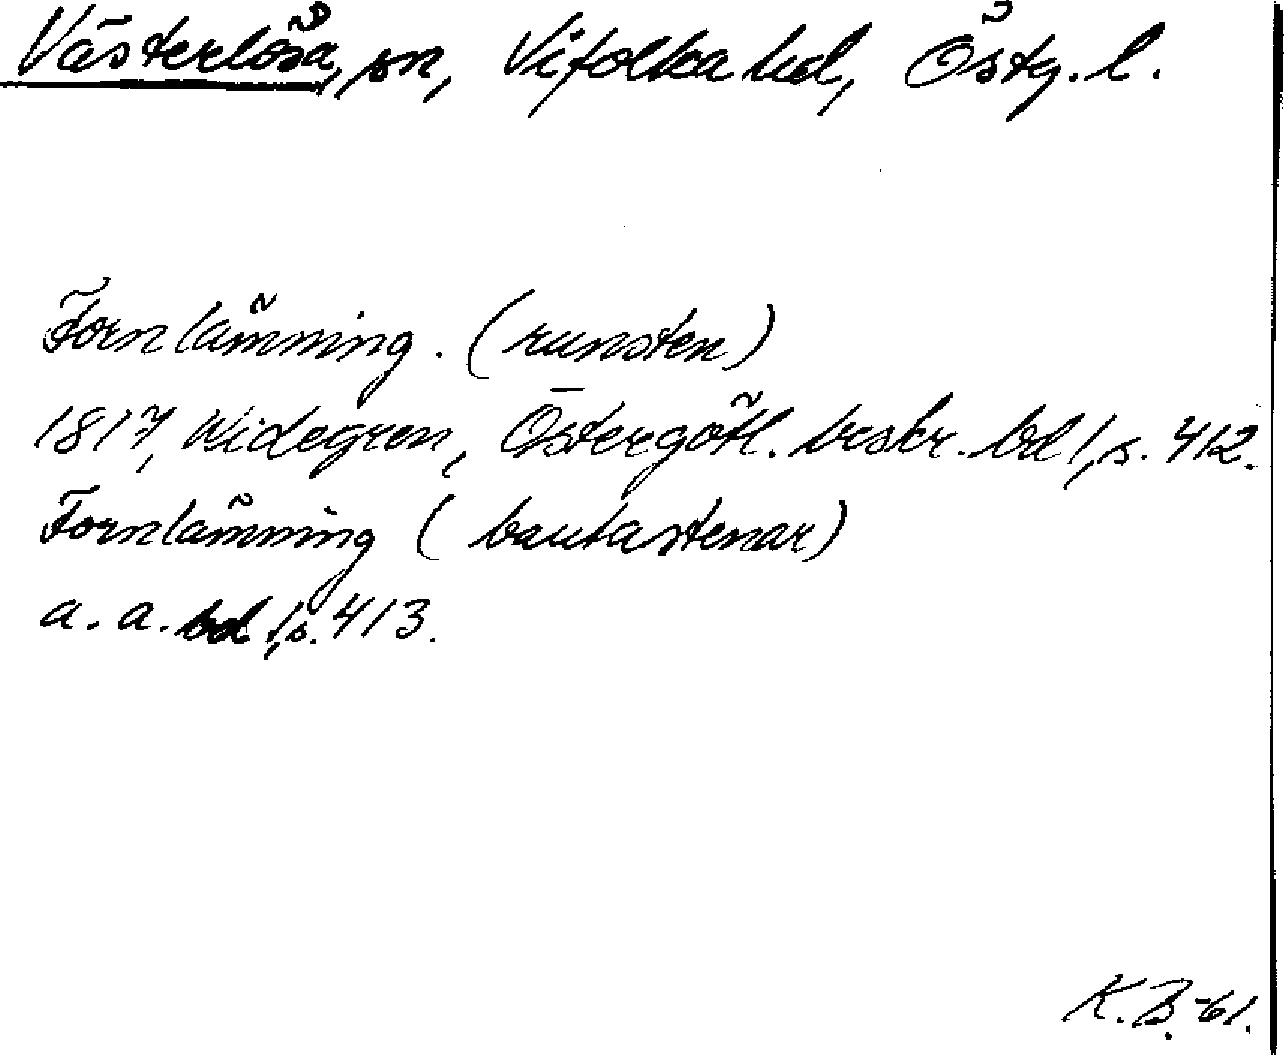 Västerlösa, sn, Vifolka hd, Östg. l.
Fornlämning. (runsten)
1817, Widegren, Östergötl. beskr. bd 1, s. 412.
Fornlämning (bautastenar)
a. a. bd 1, s. 413.
K. B. -61.